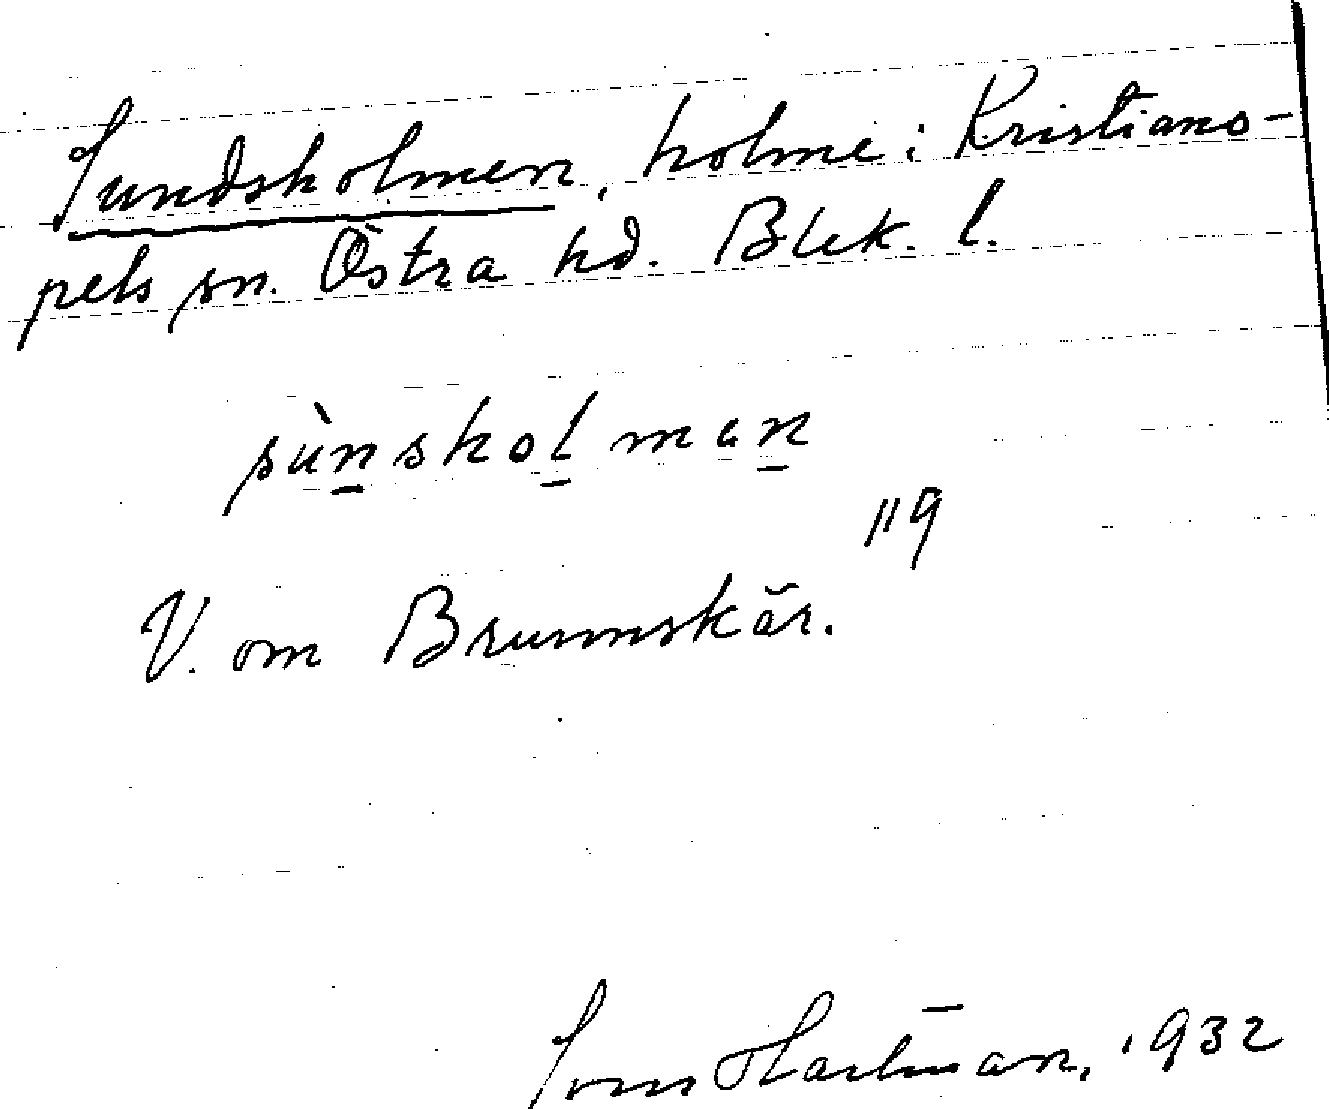 Sundsholmen, holme i Kristiano-
pels sn. Östra hd. Blek. l.
sùnskolman
119
V. om Brunnskär.
Sven Hartman, 1932